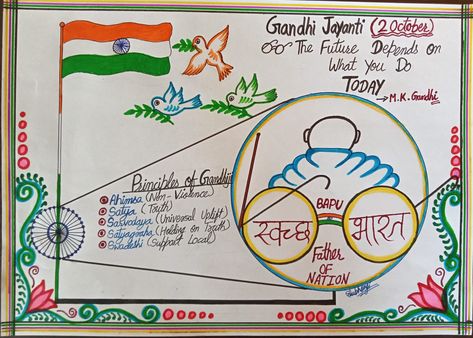 Gandhi Jayanti (2 October)
The Future Depends on
What You Do
TODAY
→ M.K. Gandhi
Principles of Gandhiji
Ahimsa (Non-Violence)
Satya (Truth)
Sarvodaya (Universal Uplift)
Satyagraha (Holding on Truth)
Swadeshi (Support Local)
BAPU
स्वच्छ
भारत
Father
OF
NATION